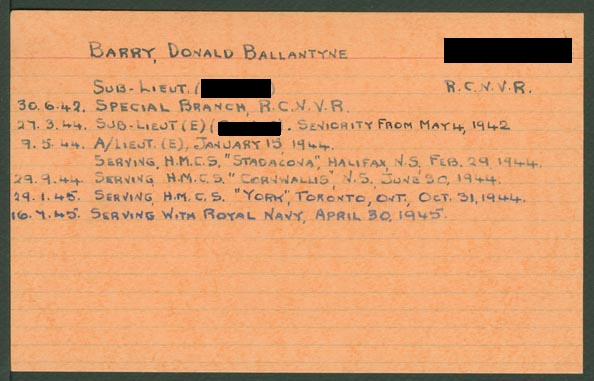 BARRY, DONALD BALLANTYNE
SUB-LIEUT. ( ) R.C.N.V.R.
30.6.42. SPECIAL BRANCH, R.C.N.V.R.
27.3.44. SUB-LIEUT (E) ( ). SENIORITY FROM MAY 4, 1942
9.5.44. A/LIEUT. (E), JANUARY 15, 1944.
SERVING, H.M.C.S. "STADACONA", HALIFAX, N.S. FEB. 29, 1944.
29.9.44. SERVING, H.M.C.S. "CORNWALLIS", N.S., JUNE 30, 1944.
29.1.45. SERVING, H.M.C.S. "YORK", TORONTO, ONT., OCT. 31, 1944.
16.7.45. SERVING WITH ROYAL NAVY, APRIL 30, 1945.